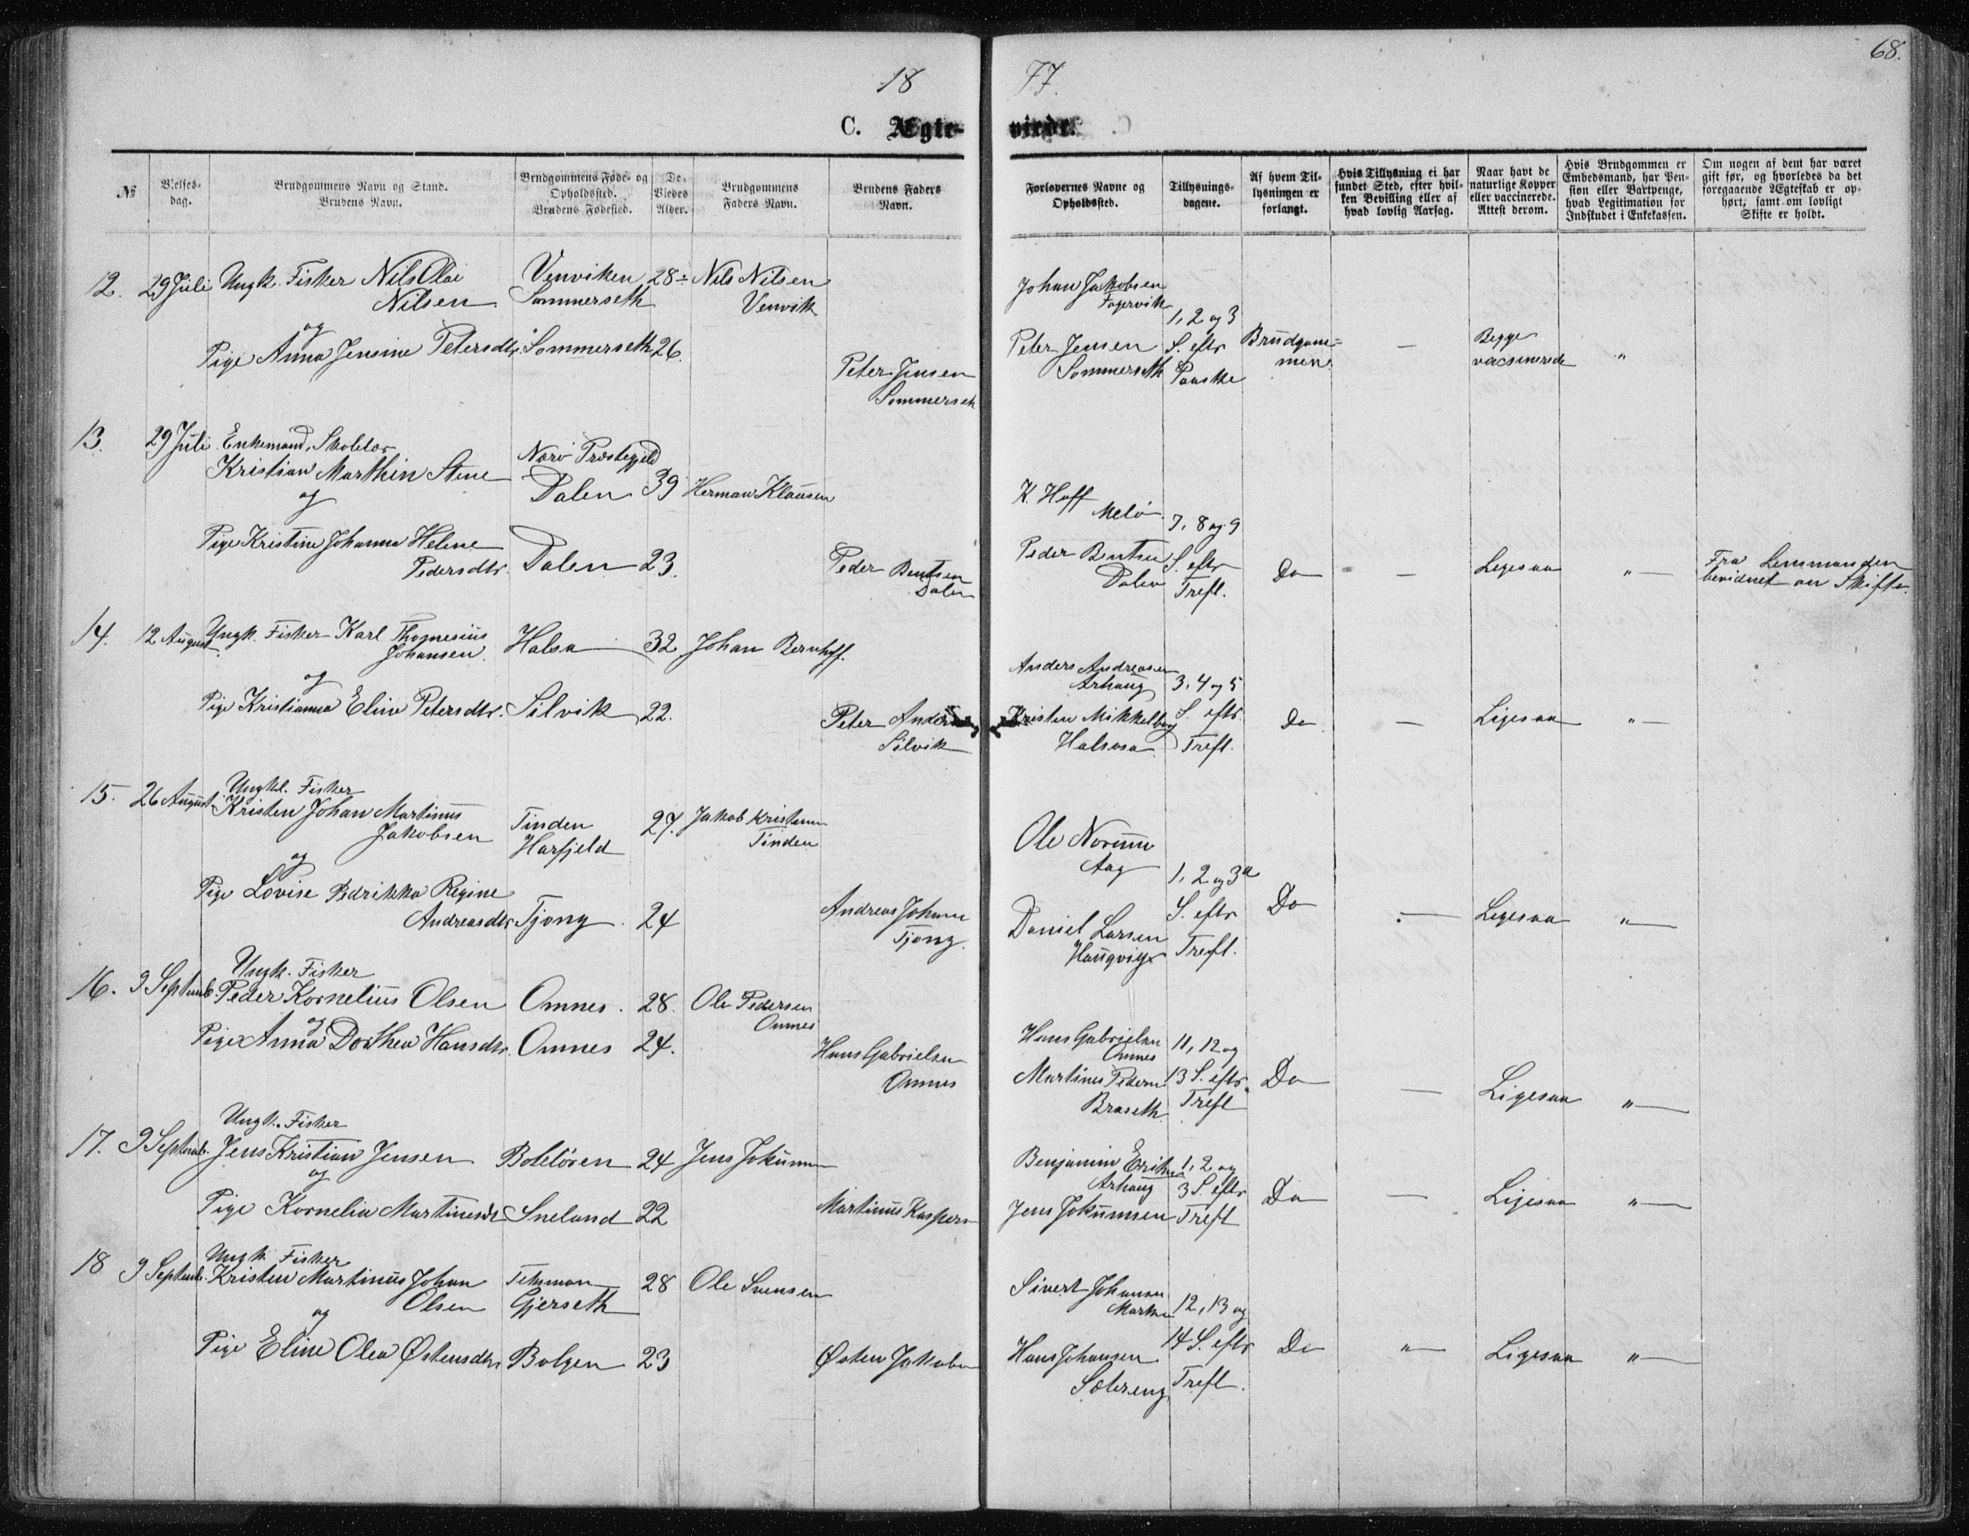 68.
18 77.
C. Ægte- viede.
№
Vielses-
dag.
Brudgommens Navn og Stand.
Brudens Navn.
Brudgommens Føde- og
Opholdssted.
Brudens Fødested.
De
Viedes
Alder.
Brudgommens
Faders Navn.
Brudens Faders
Navn.
Forlovernes Navne og
Opholdssted.
Tillysnings-
dagene.
Af hvem Til-
lysningen er
forlangt.
Hvis Tillysning ei har
fundet Sted, efter hvil-
ken Bevilling eller af
hvad lovlig Aarsag.
Naar havt de
naturlige Kopper
eller vaccinerede.
Attest derom.
Hvis Brudgommen er
Embedsmand, har Pen-
sion eller Vartpenge,
hvad Legitimation for
Indskudet i Enkekassen.
Om nogen af dem har været
gift før, og hvorledes da det
foregaaende Ægteskab er op-
hørt, samt om lovligt
Skifte er holdt.
12. 29 Juli Ungk. Fisker Nils Olai
Nilsen
Venviken
Sommerseth
28 Nils Nilsen
Venvik
og
Pige Anna Jensine Petersdtr. Sommerseth 26.
Peter Jensen
Sommerseth
Johan Jakobsen
Fagervik
Peter Jensen
Sommerseth
1, 2 og 3
S. eftr
Paaske
Brudgom-
men
—
Begge
vacsinerede
"
13. 29 Juli Enkemand, Skolelær
Kristian Marthin Stene
Nærö Præstegjeld
Dalen 39 Herman Klausen
og
Pige Kristine Johanna Helene
Pedersdtr. Dalen 23.
Peder Bentsen
Dalen
K. Hoff
Melö
Peder Bentsen
Dalen
7, 8 og 9
S. eftr
Trefl.
Do — Ligesaa "—
Fra Lensmanden
bevidnet om Skifte.
14. 12 August Ungk. Fisker Karl Thomesius
Johansen. Halsa 32 Johan Bernhoff.
og
Pige Kristianna Eline Petersdtr. Silvik 22.
Peter Anders
Silvik
Anders Andreasen
Arhaug
Kristen Mikkelborg
Halsosa
3, 4 og 5
S. eftr.
Trefl.
Do — Ligesaa "—
15. 26 August Ungkl. Fisker
Kristen Johan Martinus
Jakobsen
Tinden
Harfjeld
27. Jakob Kristensen
Tinden
og
Pige Lovise Pedrikka Regine
Andreasdtr Tjong 24
Andreas Johann
Tjong.
Ole Norum
Aag
Daniel Larsen
Haugvig
1, 2 og 3
S. eftr
Trefl.
Do — Ligesaa "—
16. 9 Septemb. Ungk. Fisker
Peder Kornelius Olsen Omnes. 28. Ole Pedersen
Omnes
og
Pige Anna Dorthea Hansdtr. Omnes 24.
Hans Gabrielsen
Omnes
Hans Gabrielsen
Omnes
Martines Pedersen
Braseth
11, 12 og
13 S. eftr.
Trefl
Do — Ligesaa "—
17. 9 Septemb. Ungk. Fisker
Jens Kristian Jensen Bolelören 24 Jens Jokumsen
og
Pige Kornelia Martinusdt Sneland 22
Martinus Kaspers
Benjamin Eriksen
Arhaug
Jens Jokumsen
1, 2 og
3 S. eftr
Trefl
Do — Ligesaa "—
18 9 Septemb. Ungk. Fisker
Kristen Martinus Johan
Olsen
Gjerseth
28 Ole Svensen
og
Pige Eline Olea Østensdtr Bolgen 23
Østen Jakobsen
Sivert Johansen
Hans Johansen
Sætreng
12, 13 og
14 S. eftr
Trefl.
Do "— Ligesaa "—